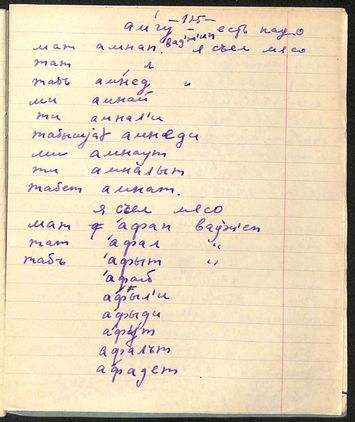 -125-
амгу — есть надо
мат амнап. вад'ж'ип я съел мясо
тат л
табъ амнед "
ми амнай
ти амнал'и
табыщjаг амнеди
ми амнаут
ти амналыт
табет амнат.
я съел мясо
мат 'афап вад'жеп
тат 'афал "
табъ 'афыт "
'афай
афыл'и
афыди
'афут
афалът
афадет